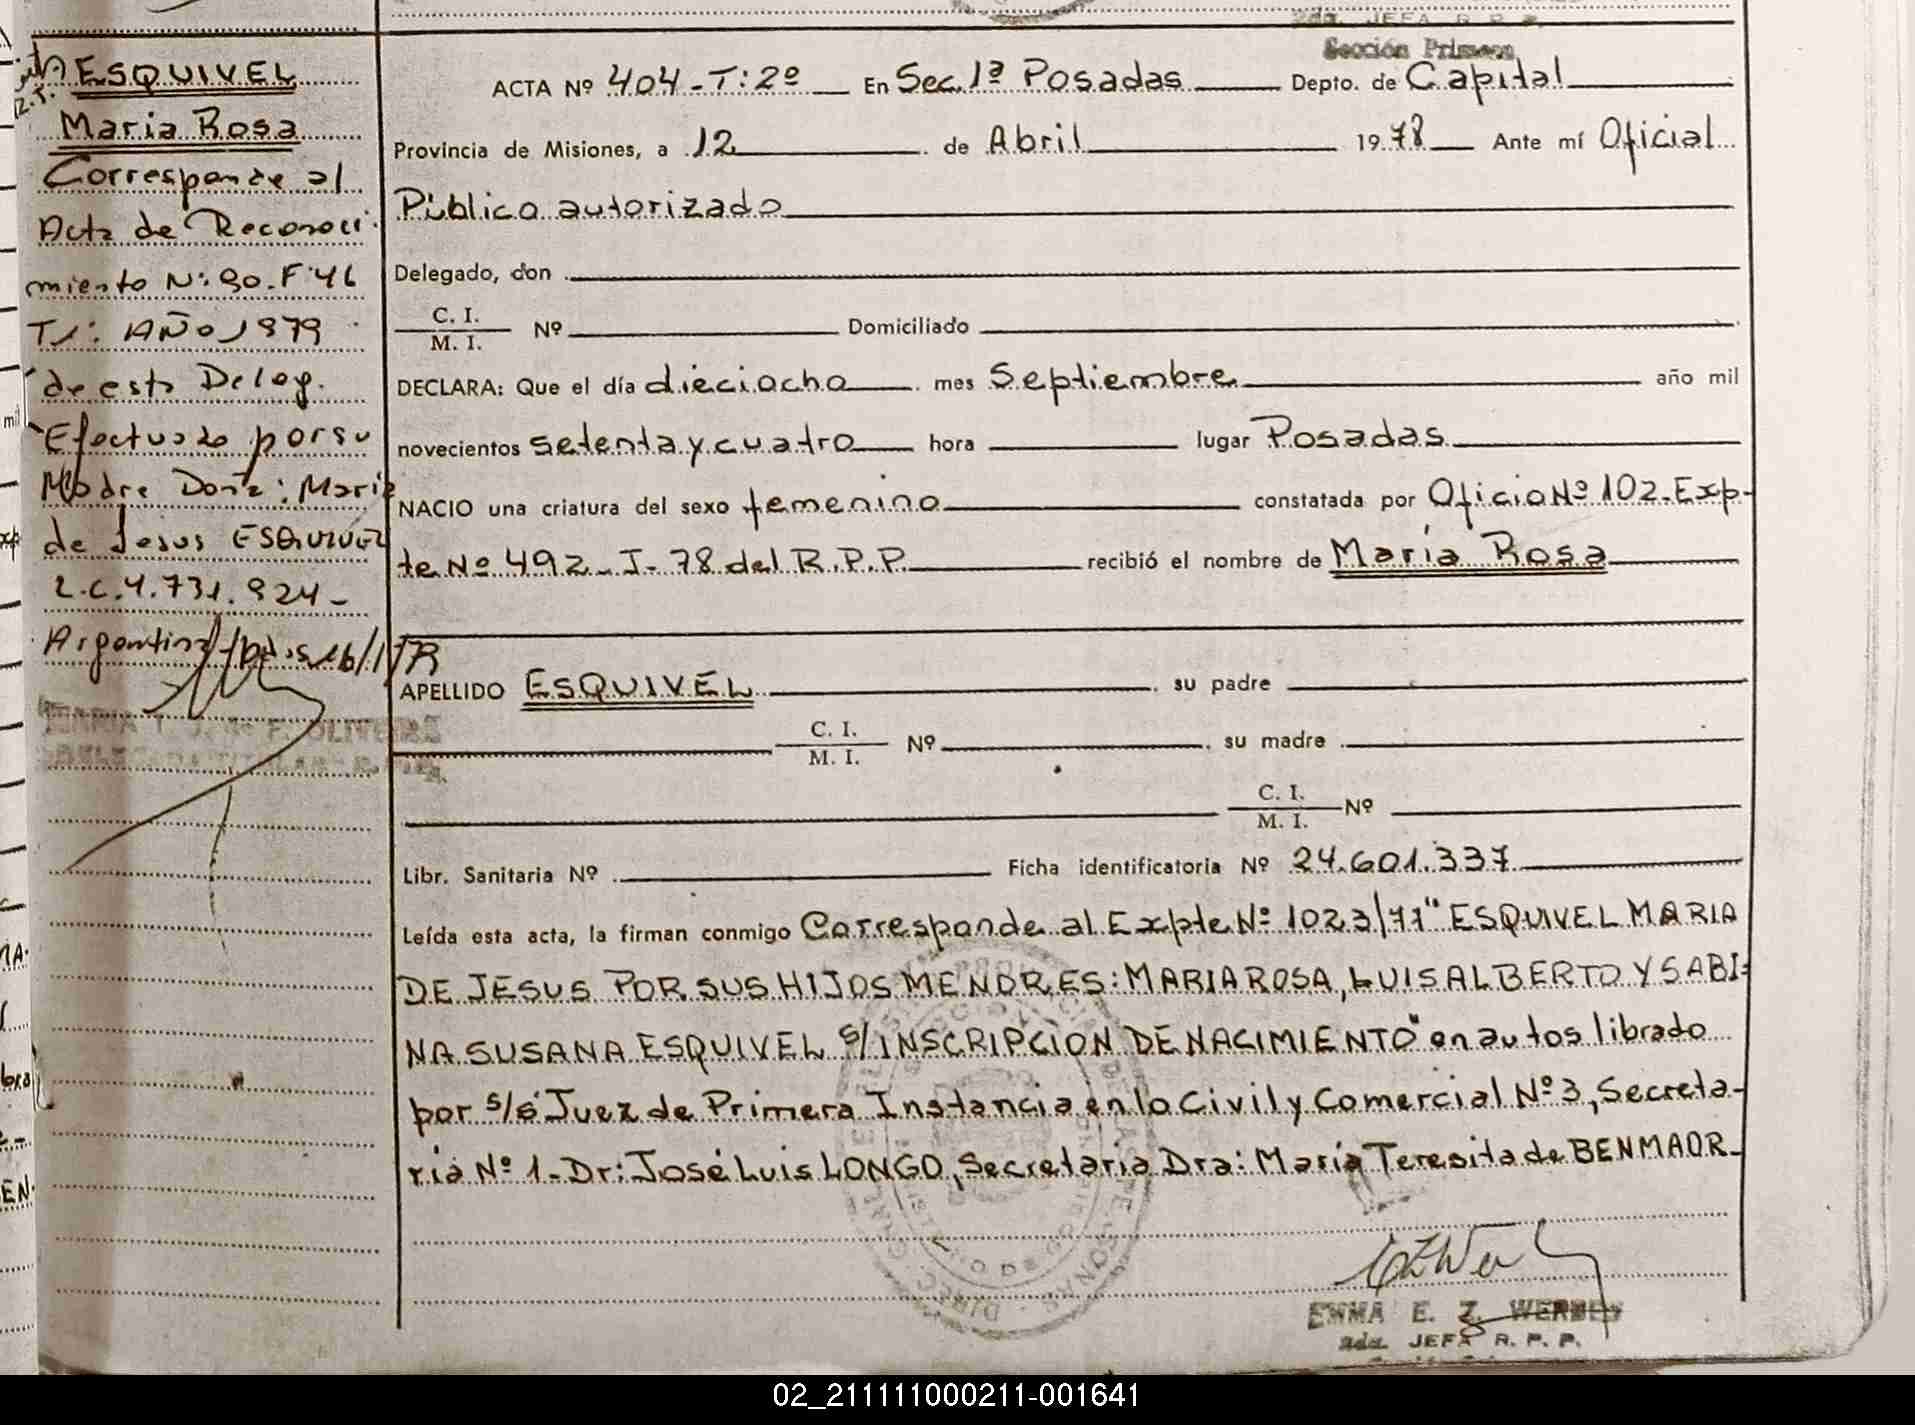 2da. JEFA R. P. P.
Sección Primera
ESQUIVEL
Maria Rosa
Corresponde al
Acta de Reconoci
miento Nº: 90. F: 46
T1: AÑO 1979
de esta Deleg.
Efectuado por su
Madre Doña: Maria
de Jesus ESQUIVEL
L.C. 4.731.924-
Argentina
ACTA Nº 404-T:2º En Sec. 1ª Posadas Depto. de Capital
Provincia de Misiones, a 12 de Abril 1978 Ante mí Oficial
Público autorizado
Delegado, don
C. I.
M. I. Nº Domiciliado
DECLARA: Que el día dieciocho mes Septiembre año mil
novecientos setenta y cuatro hora lugar Posadas
NACIO una criatura del sexo femenino constatada por Oficio Nº 102-Exp-
te Nº 492-I-78 del R.P.P. recibió el nombre de María Rosa
APELLIDO ESQUIVEL su padre
C. I.
M. I. Nº su madre
C. I.
M. I. Nº
Libr. Sanitaria Nº Ficha identificatoria Nº 24.601.337
Leída esta acta, la firman conmigo Corresponde al Expte Nº 1023/77" ESQUIVEL MARIA
DE JESUS POR SUS HIJOS MENORES: MARIA ROSA, LUIS ALBERTO Y SABI=
NA SUSANA ESQUIVEL s/INSCRIPCION DE NACIMIENTO" en autos librado
por s/s Juez de Primera Instancia en lo Civil y Comercial Nº 3, Secreta-
ria Nº 1-Dr: José Luis LONGO, Secretaria Dra: María Teresita de BENMAOR-
EMMA E. Z. WERDEN
2da. JEFA R. P. P.
02_211111000211-001641